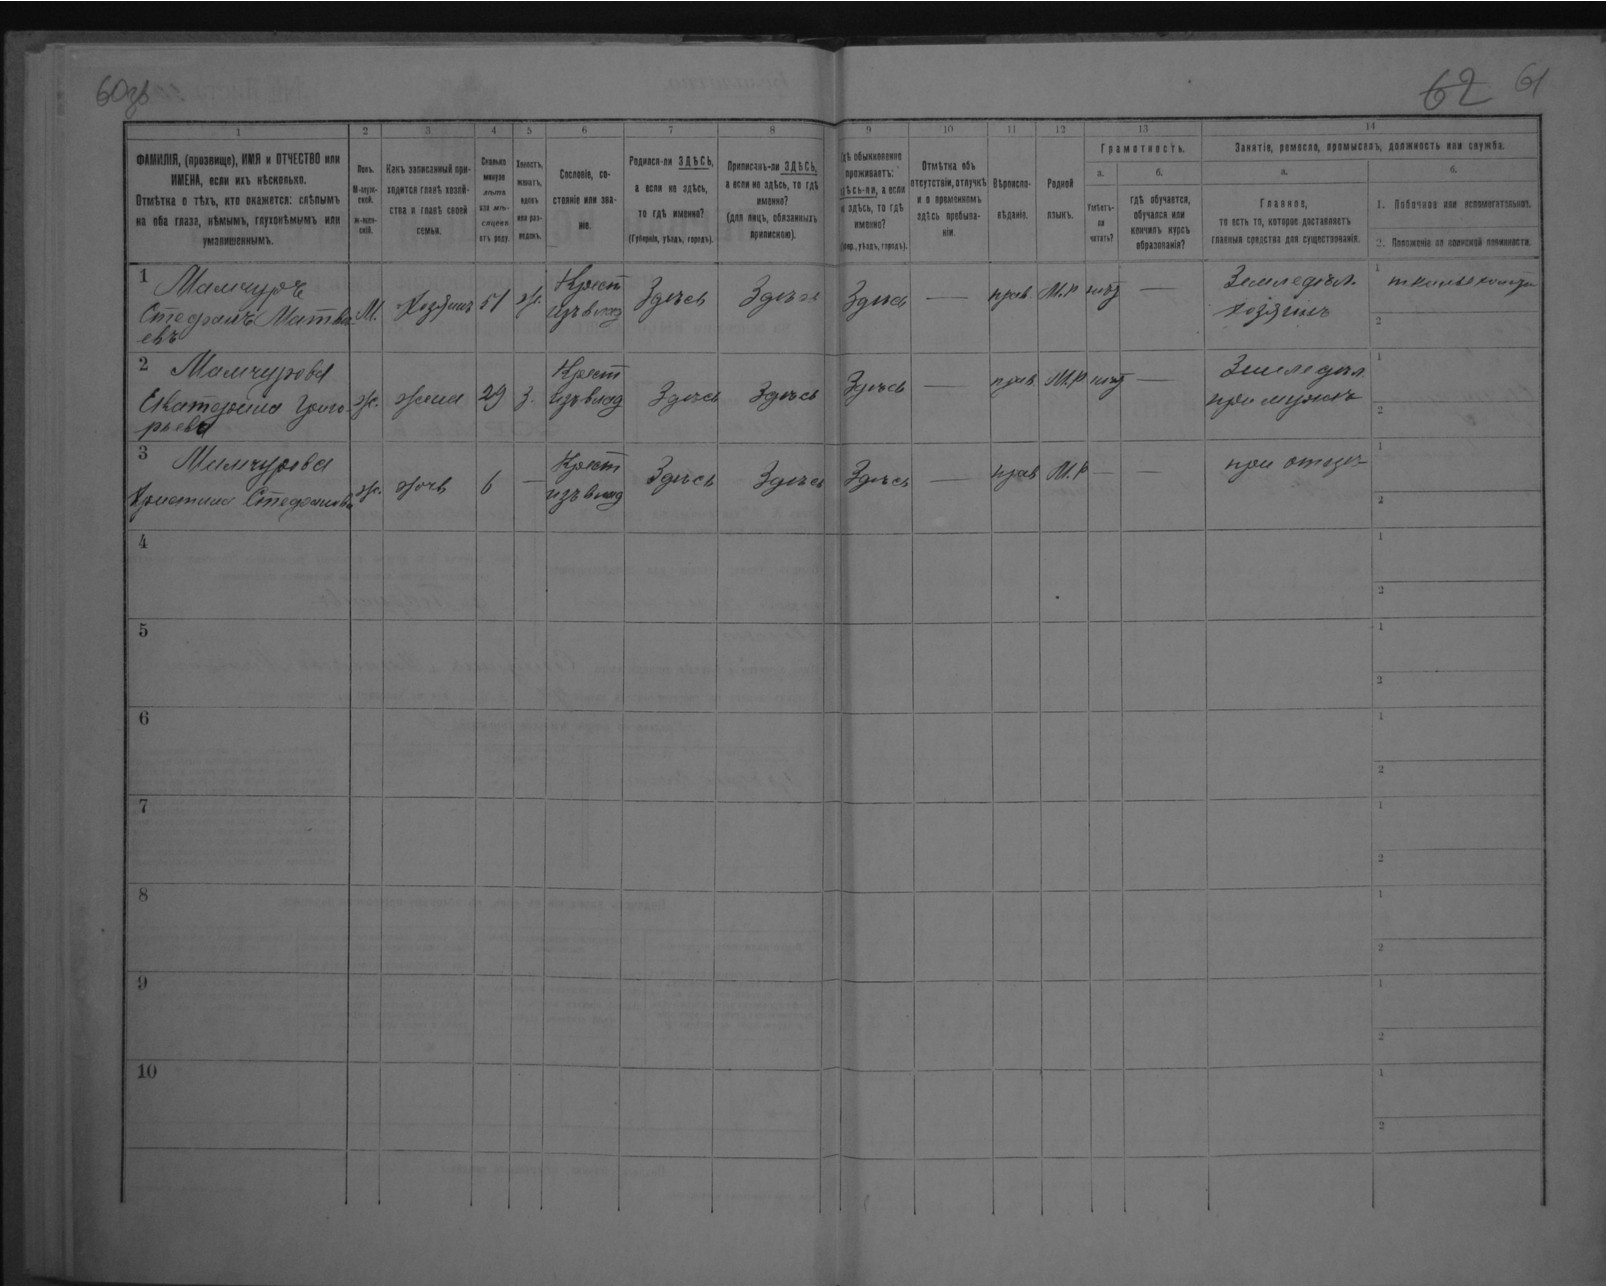 60об
62 61
1 2 3 4 5 6 7 8 9 10 11 12 13 14
ФАМИЛІЯ, (прозвище), ИМЯ и ОТЧЕСТВО или
ИМЕНА, если ихъ нѣсколько.
Отмѣтка о тѣхъ, кто окажется: слѣпымъ
на оба глаза, нѣмымъ, глухонѣмымъ или
умалишеннымъ.
Полъ.
М-мужской.
Ж-женскій.
Какъ записанный при-
ходится главѣ хозяй-
ства и главѣ своей
семьи.
Сколько
минуло
лѣтъ
или мѣ-
сяцевъ
отъ роду.
Холостъ,
женатъ,
вдовъ
или раз-
веденъ.
Сословіе, со-
стояніе или зва-
ніе.
Родился-ли ЗДѢСЬ,
а если не здѣсь,
то гдѣ именно?
(Губернія, уѣздъ, городъ).
Приписанъ-ли ЗДѢСЬ,
а если не здѣсь, то гдѣ
именно?
(для лицъ, обязанныхъ
припискою).
Гдѣ обыкновенно
проживаетъ:
здѣсь-ли, а если
не здѣсь, то гдѣ
именно?
(Губер., уѣздъ, городъ).
Отмѣтка объ
отсутствіи, отлучкѣ
и о временномъ
здѣсь пребыва-
ніи.
Вѣроиспо-
вѣданіе.
Родной
языкъ.
Грамотность.
а.
Умѣетъ-
ли
читать?
б.
гдѣ обучается,
обучался или
кончилъ курсъ
образованія?
Занятіе, ремесло, промыселъ, должность или служба.
а.
Главное,
то есть то, которое доставляетъ
главныя средства для существованія.
б.
1. Побочное или вспомогательное.
2. Положеніе по воинской повинности.
1 Мамчуръ
Стефанъ Матвѣ-
евъ
М. Хозяинъ 51 ж. Крест изъ влад Здѣсь Здѣсь Здѣсь — прав. М.р нѣтъ — Земледѣл. хозяинъ
1
2
2 Мамчурова
Екатерина Григо-
рьева
ж. жена 29 з. Крест изъ влад Здѣсь Здѣсь Здѣсь — прав. М.р нѣтъ — Земледѣл при мужѣ
1
2
3 Мамчурова
Христина Стефанова
ж. дочь 6 — Крест изъ влад Здѣсь Здѣсь Здѣсь — прав М.р — — при отцѣ
1
2
4
1
2
5
1
2
6
1
2
7
1
2
8
1
2
9
1
2
10
1
2